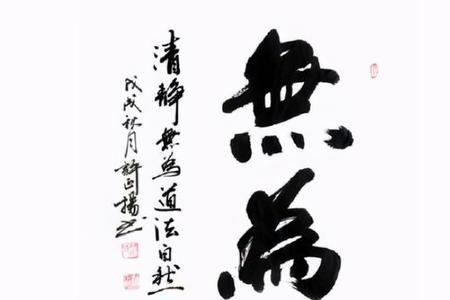 無為
清靜無為道法自然
戊戌秋月許正揚书